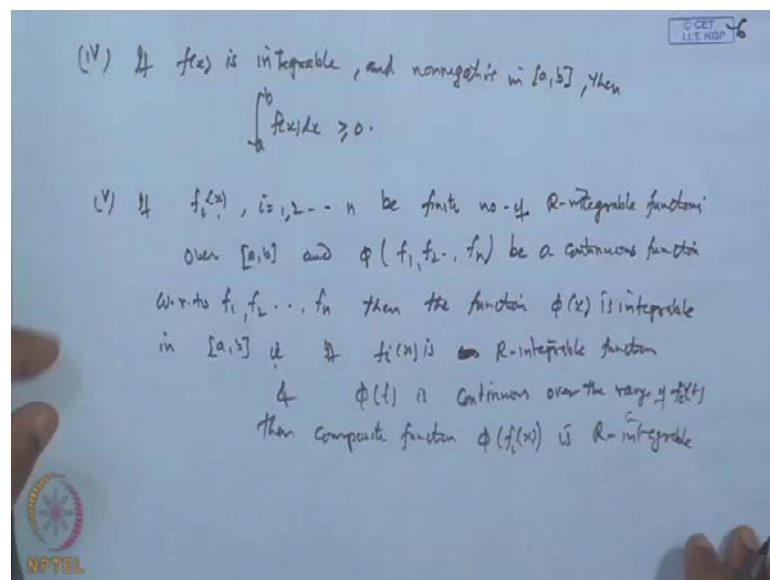 C CET
I.I.T. KGP
6
(iv) If f(x) is integrable, and nonnegative in [a,b], then
∫_a^b f(x)dx ≥ 0.
(v) If f_i(x), i=1,2--- n be finite no. of R-integrable functions
over [a,b] and ϕ(f_1,f_2.., f_n) be a continuous function
w.r.to f_1, f_2 ..., f_n then the function ϕ(x) is integrable
in [a,b] ie If f_i(x) is R-integrable function
& ϕ(t) is continuous over the range of
then composite function ϕ(f_i(x)) is R-integrable
NPTEL